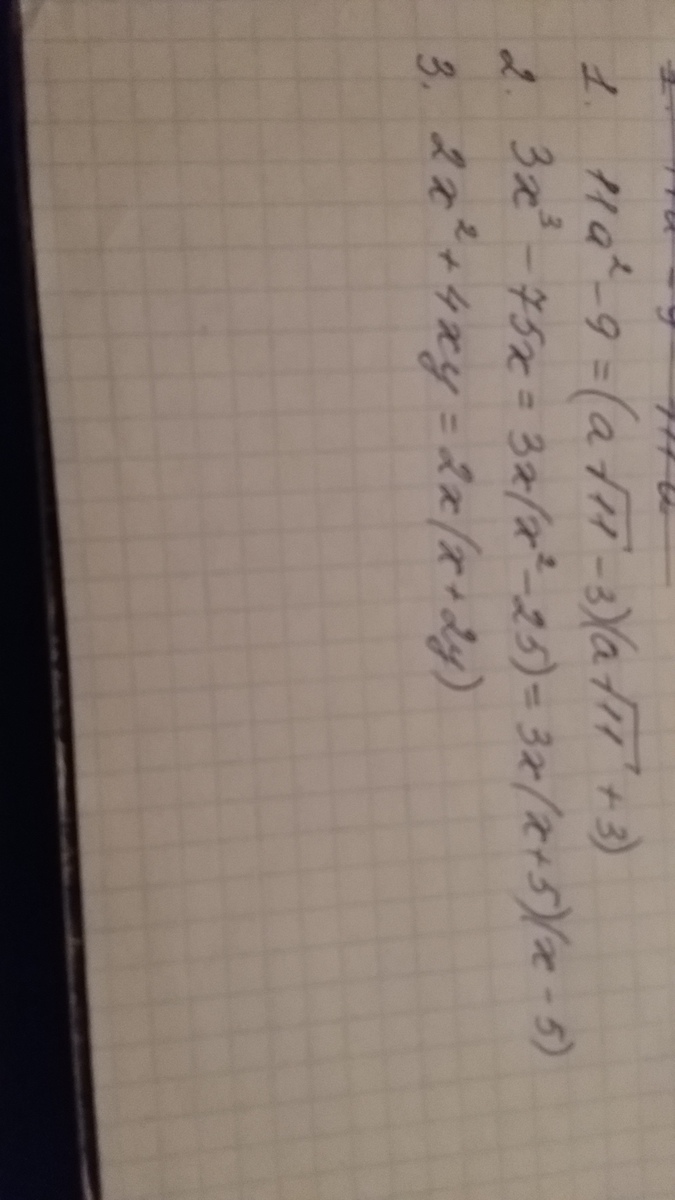 1. 11a² - 9 = (a√11 - 3)(a√11 + 3)
2. 3x³ - 75x = 3x(x² - 25) = 3x(x + 5)(x - 5)
3. 2x² + 4xy = 2x(x + 2y)